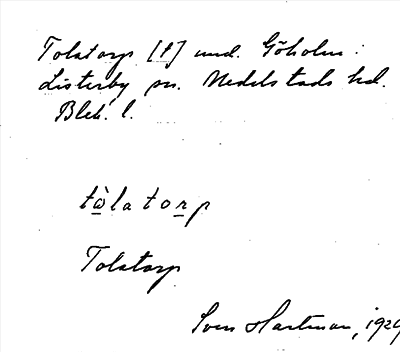 Tolatorp [t] und. Göholm.
Listerby sn. Medelstads hd.
Blek. l.
tòlatorp
Tolatorp
Sven Hartman, 1929